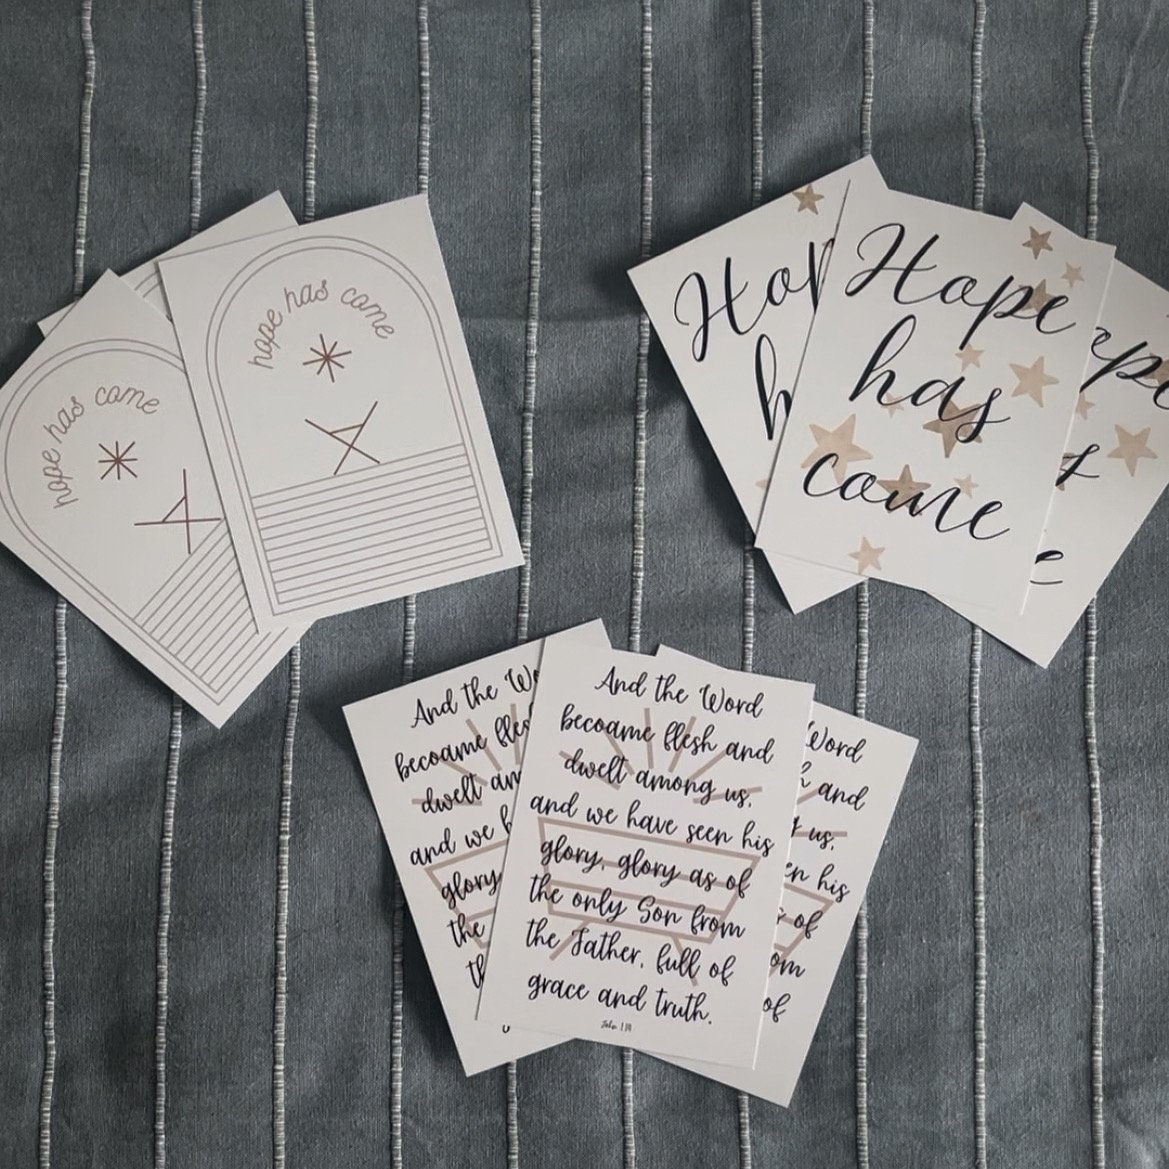 hope has come
hope has come
Hop
h
Hope
has
come
ope
e
And the Wo
becoame fles
dwelt am
and we h
glory,
the
th
And the Word
becoame flesh and
dwelt among us,
and we have seen his
glory, glory as of
the only Son from
the Father, full of
grace and truth.
John 1:14
Word
h and
us,
en his
of
om
of